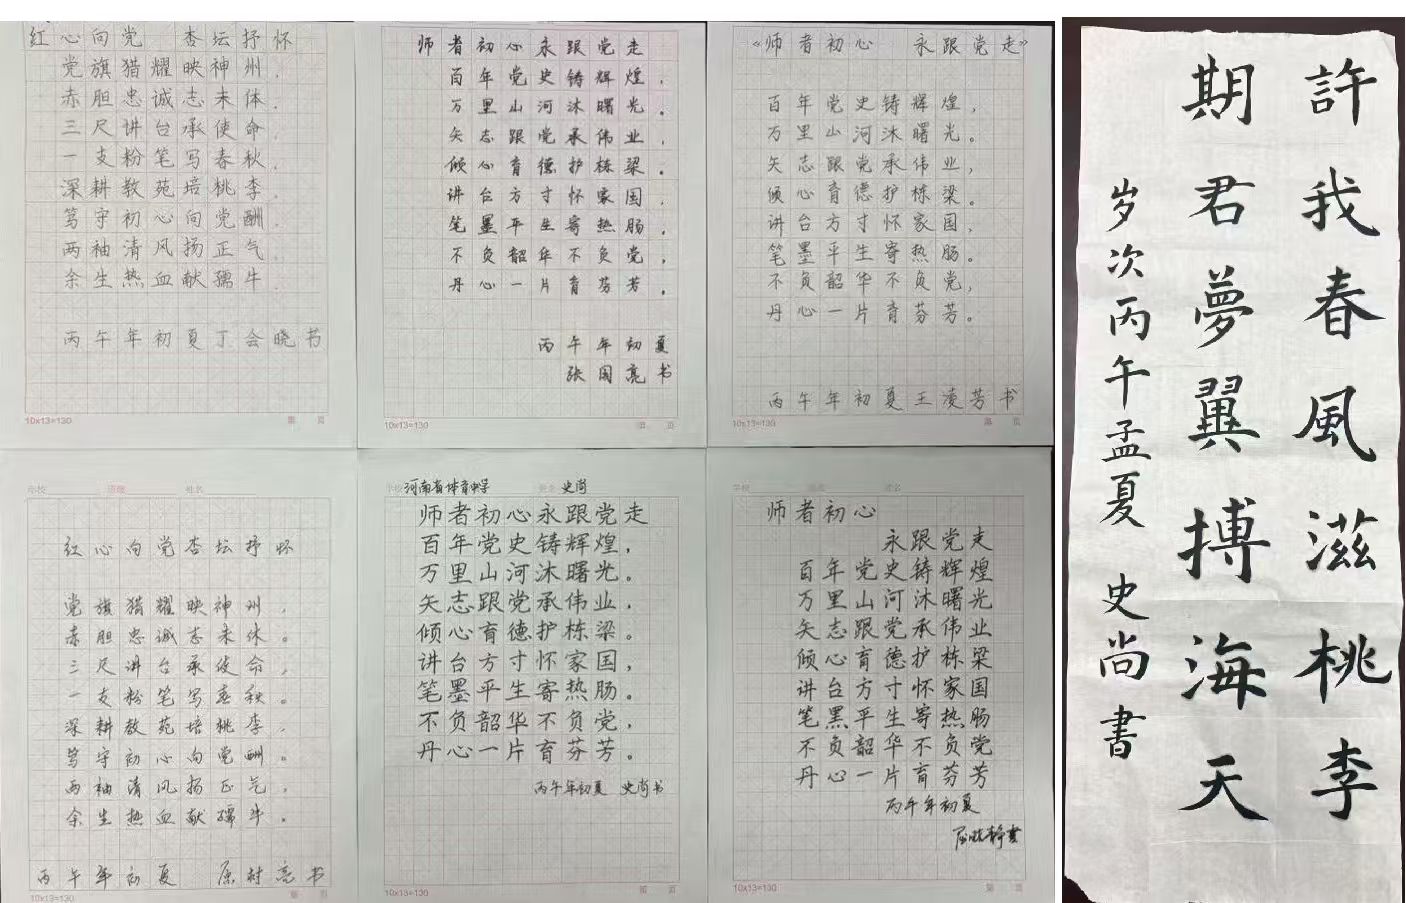 红心向党 杏坛抒怀
党旗猎耀映神州,
赤胆忠诚志未休.
三尺讲台承使命,
一支粉笔写春秋.
深耕教苑培桃李,
笃守初心向党酬.
两袖清风扬正气,
余生热血献孺牛.
丙午年初夏丁会晓书
10x13=130 第 页
师者初心永跟党走
百年党史铸辉煌,
万里山河沐曙光。
矢志跟党承伟业,
倾心育德护栋梁。
讲台方寸怀家国,
笔墨平生寄热肠,
不负韶华不负党,
丹心一片育芬芳。
丙午年初夏
张国亮书
10x13=130 第 页
《师者初心 永跟党走》
百年党史铸辉煌,
万里山河沐曙光。
矢志跟党承伟业,
倾心育德护栋梁。
讲台方寸怀家国,
笔墨平生寄热肠。
不负韶华不负党,
丹心一片育芬芳。
丙午年初夏王凌芳书
10x13=130 第 页
学校 班级 姓名
红心向党杏坛抒怀
党旗猎耀映神州,
赤胆忠诚志未休。
三尺讲台承使命,
一支粉笔写春秋。
深耕教苑培桃李,
笃守初心向党酬。
两袖清风扬正气,
余生热血献孺牛。
丙午年初夏 原村亮书
10x13=130 第 页
学校 河南省体育中学 姓名 史尚
师者初心永跟党走
百年党史铸辉煌,
万里山河沐曙光。
矢志跟党承伟业,
倾心育德护栋梁。
讲台方寸怀家国,
笔墨平生寄热肠。
不负韶华不负党,
丹心一片育芬芳。
丙午年初夏 史尚书
10x13=130 第 页
学校 姓名
师者初心
永跟党走
百年党史铸辉煌
万里山河沐曙光
矢志跟党承伟业
倾心育德护栋梁
讲台方寸怀家国
笔黑平生寄热肠
不负韶华不负党
丹心一片育芬芳
丙午年初夏
静书
10x13=130 第 页
許我春風滋桃李
期君夢翼搏海天
岁次丙午孟夏 史尚書